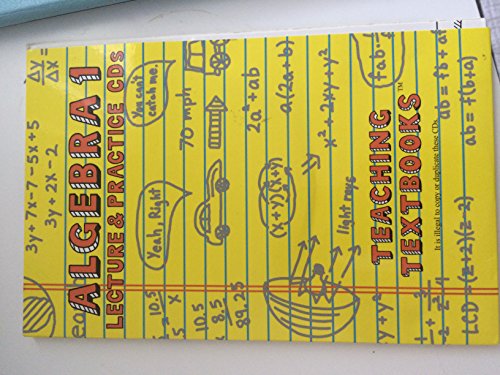 3y + 7x - 7 - 5x + 5
Δy
Δx
=
3y + 2x - 2
ALGEBRA 1
LECTURE & PRACTICE CDs
10.5
x
Yeah, Right
You can't
catch me.
70 mph
10.5
8.5
89.25
2a² + ab
a(2a + b)
(x+y)(x+y)
x² + 2xy + y²
light rays
y + y²
fab
TEACHING
TEXTBOOKS™
It is illegal to copy or duplicate these CDs.
ab = fb + af
ab = f(b+a)
LCD = (z+2)(z-2)